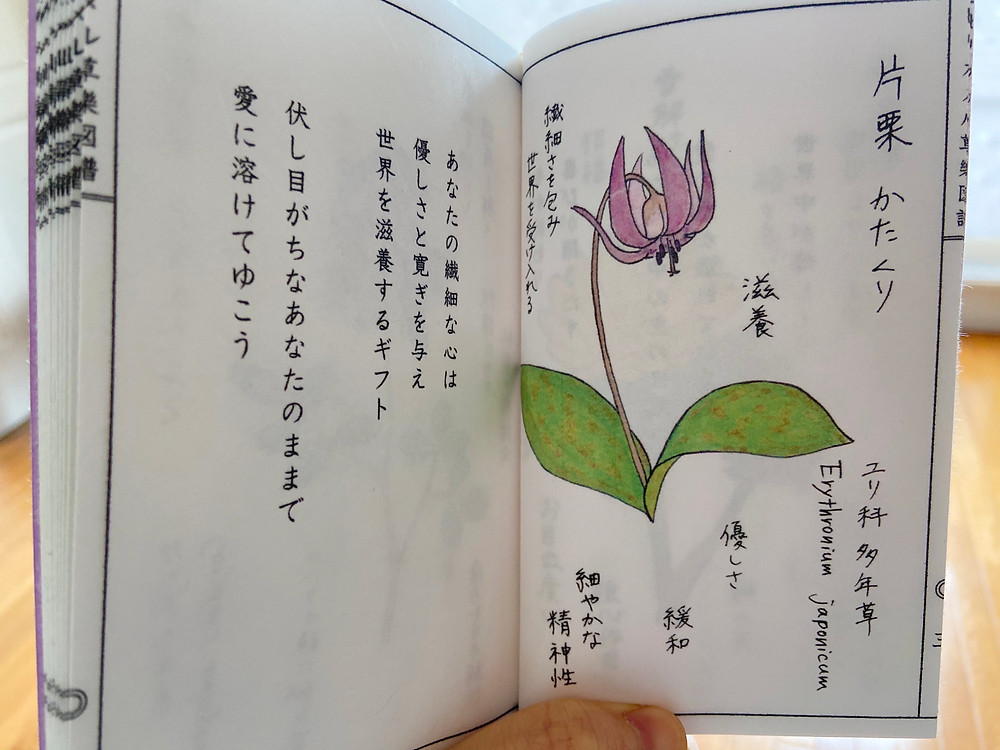 片栗 かたくり
ユリ科 多年草
Erythronium japonicum
滋養
優しさ
緩和
細やかな
精神性
繊細さを包み
世界を受け入れる
あなたの繊細な心は
優しさと寛ぎを与え
世界を滋養するギフト
伏し目がちなあなたのままで
愛に溶けてゆこう